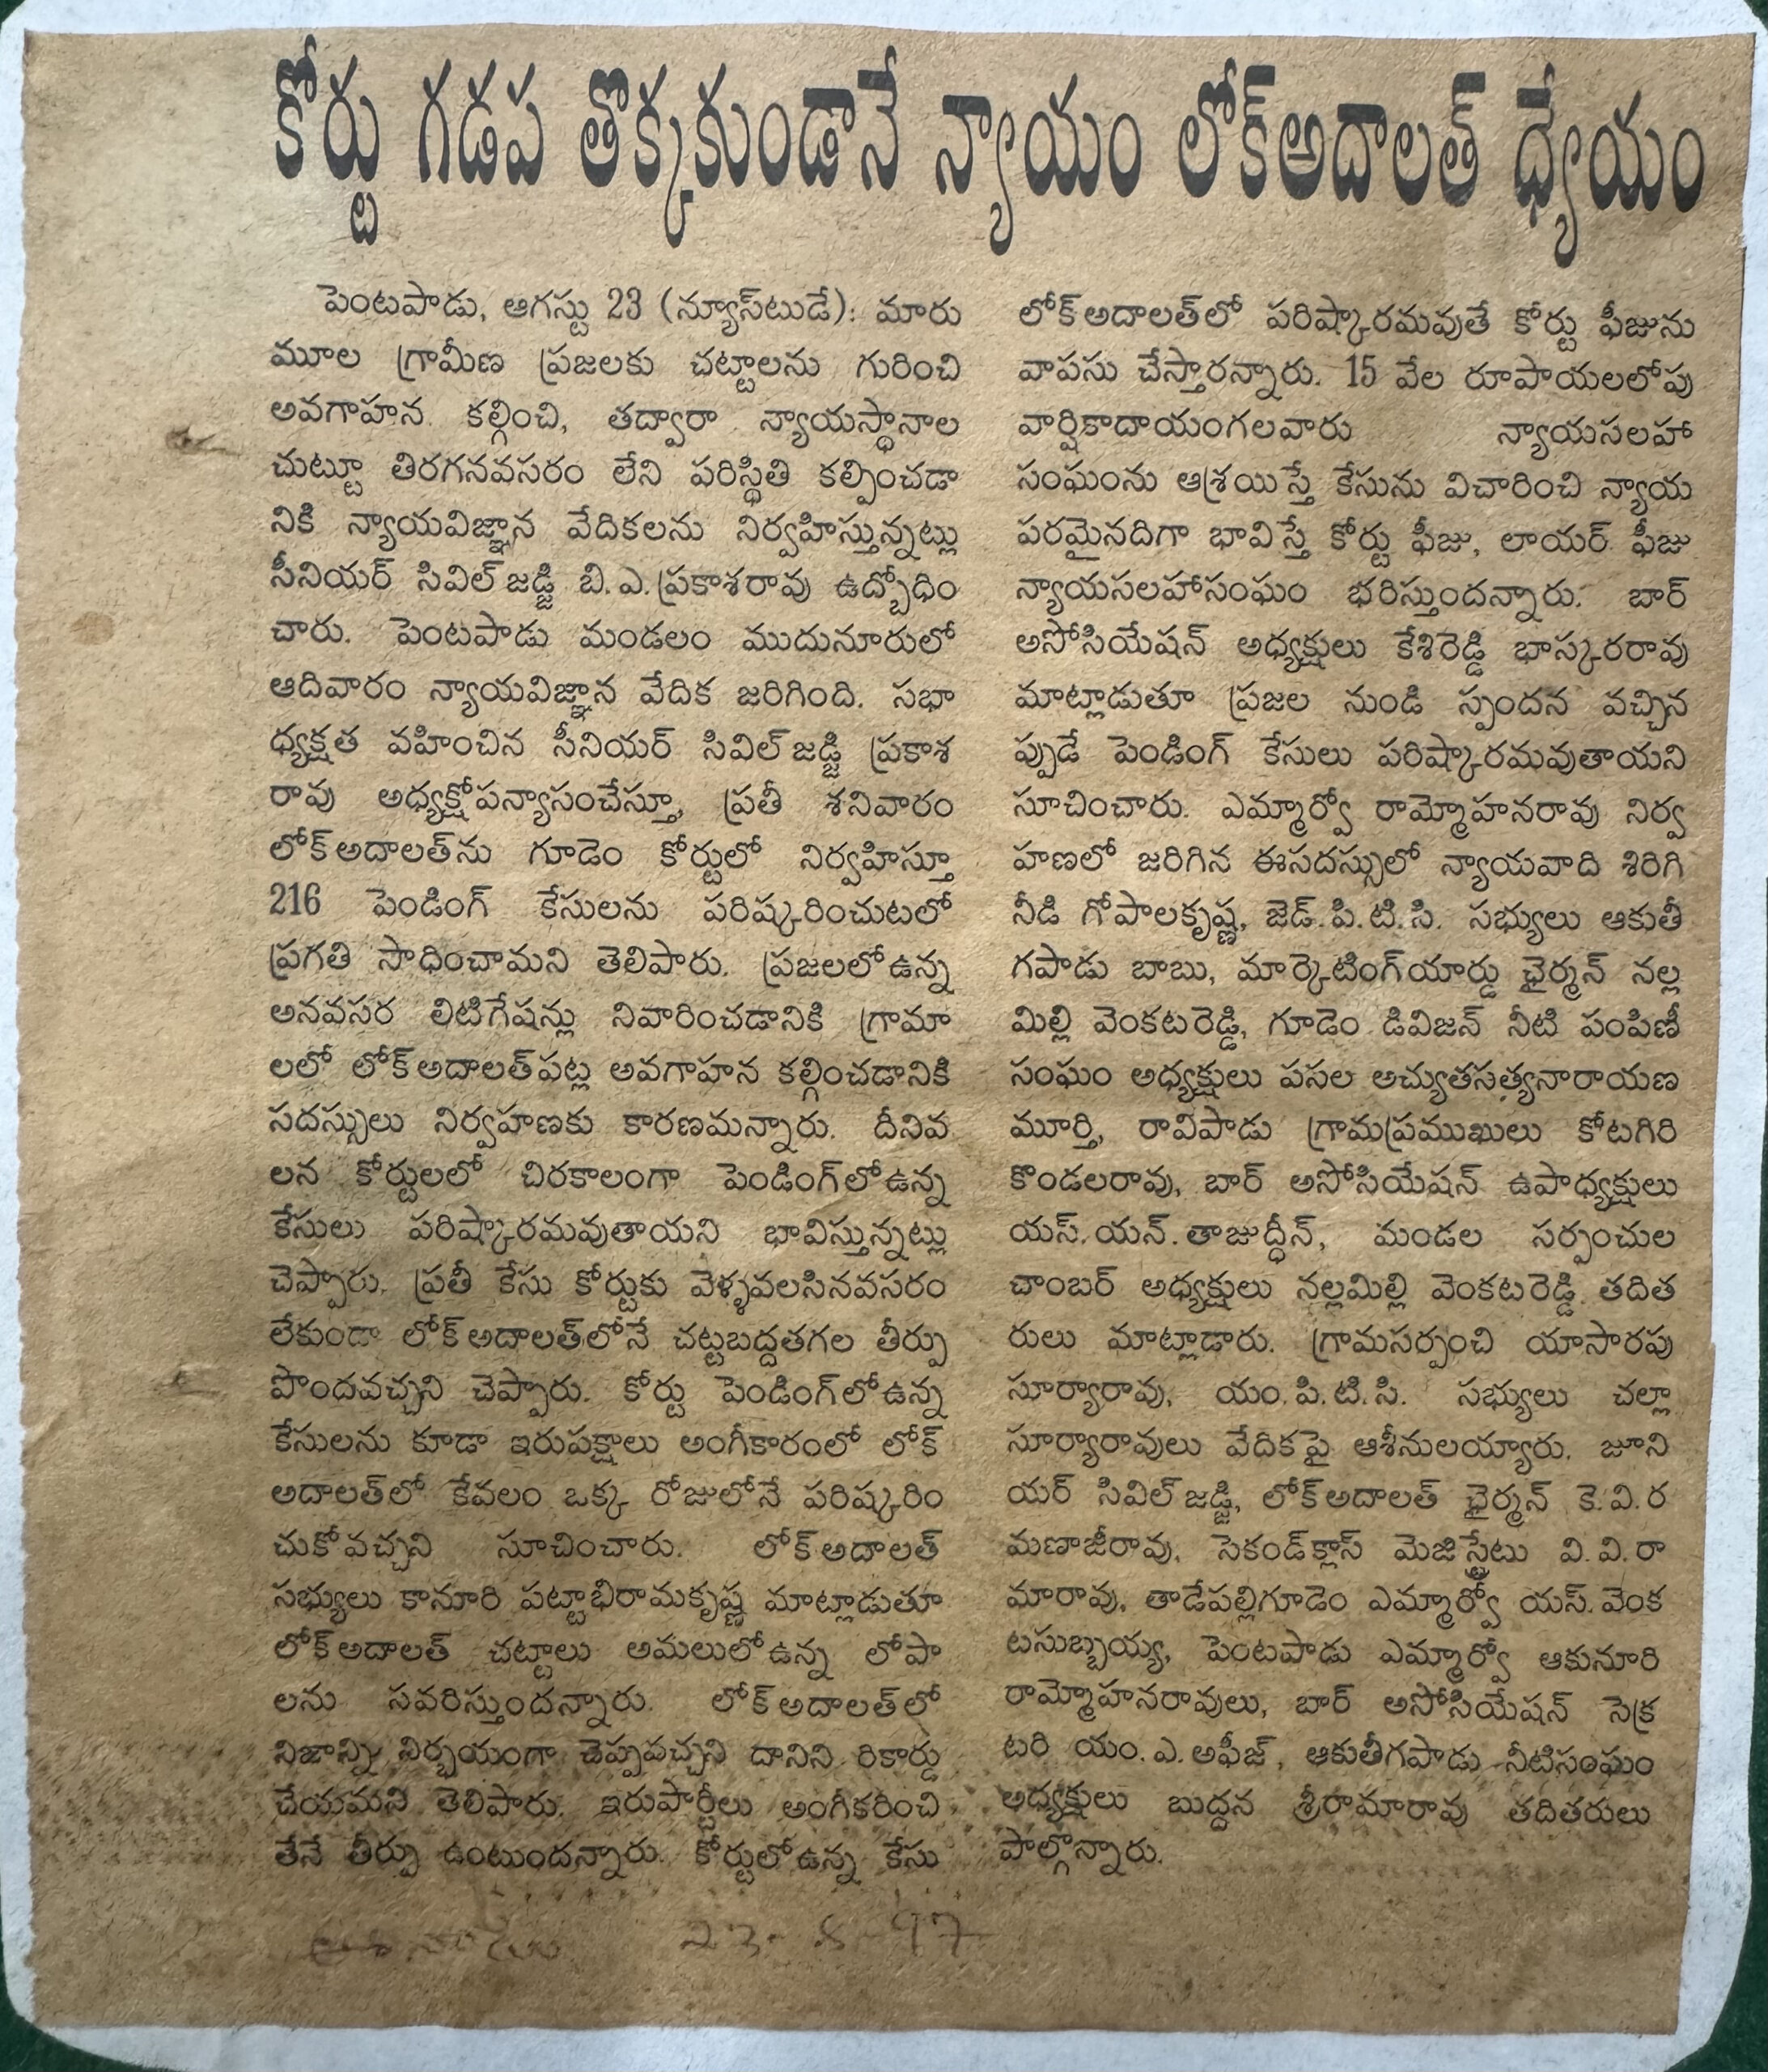 కోర్టు గడప తొక్కకుండానే న్యాయం లోక్అదాలత్ ధ్యేయం
పెంటపాడు, ఆగస్టు 23 (న్యూస్‌టుడే): మారు
మూల గ్రామీణ ప్రజలకు చట్టాలను గురించి
అవగాహన కల్గించి, తద్వారా న్యాయస్థానాల
చుట్టూ తిరగనవసరం లేని పరిస్థితి కల్పించడా
నికి న్యాయవిజ్ఞాన వేదికలను నిర్వహిస్తున్నట్లు
సీనియర్ సివిల్ జడ్జి బి.ఎ.ప్రకాశరావు ఉద్బోధిం
చారు. పెంటపాడు మండలం ముదునూరులో
ఆదివారం న్యాయవిజ్ఞాన వేదిక జరిగింది. సభా
ధ్యక్షత వహించిన సీనియర్ సివిల్ జడ్జి ప్రకాశ
రావు అధ్యక్షోపన్యాసంచేస్తూ, ప్రతీ శనివారం
లోక్ అదాలత్‌ను గూడెం కోర్టులో నిర్వహిస్తూ
216 పెండింగ్ కేసులను పరిష్కరించుటలో
ప్రగతి సాధించామని తెలిపారు. ప్రజలలో ఉన్న
అనవసర లిటిగేషన్లు నివారించడానికి గ్రామా
లలో లోక్ అదాలత్‌పట్ల అవగాహన కల్గించడానికి
సదస్సులు నిర్వహణకు కారణమన్నారు. దీనివ
లన కోర్టులలో చిరకాలంగా పెండింగ్‌లో ఉన్న
కేసులు పరిష్కారమవుతాయని భావిస్తున్నట్లు
చెప్పారు. ప్రతీ కేసు కోర్టుకు వెళ్ళవలసినవసరం
లేకుండా లోక్ అదాలత్‌లోనే చట్టబద్దతగల తీర్పు
పొందవచ్చని చెప్పారు. కోర్టు పెండింగ్‌లో ఉన్న
కేసులను కూడా ఇరుపక్షాలు అంగీకారంలో లోక్
అదాలత్‌లో కేవలం ఒక్క రోజులోనే పరిష్కరిం
చుకోవచ్చని సూచించారు. లోక్ అదాలత్
సభ్యులు కానూరి పట్టాభిరామకృష్ణ మాట్లాడుతూ
లోక్ అదాలత్ చట్టాలు అమలులో ఉన్న లోపా
లను సవరిస్తుందన్నారు. లోక్ అదాలత్‌లో
నిజాన్ని నిర్భయంగా చెప్పవచ్చని దానిని రికార్డు
చేయమని తెలిపారు. ఇరుపార్టీలు అంగీకరించి
తేనే తీర్పు ఉంటుందన్నారు. కోర్టులో ఉన్న కేసు
లోక్ అదాలత్‌లో పరిష్కారమవుతే కోర్టు ఫీజును
వాపసు చేస్తారన్నారు. 15 వేల రూపాయలలోపు
వార్షికాదాయంగలవారు న్యాయసలహా
సంఘంను ఆశ్రయిస్తే కేసును విచారించి న్యాయ
పరమైనదిగా భావిస్తే కోర్టు ఫీజు, లాయర్ ఫీజు
న్యాయసలహాసంఘం భరిస్తుందన్నారు. బార్
అసోసియేషన్ అధ్యక్షులు కేశిరెడ్డి భాస్కరరావు
మాట్లాడుతూ ప్రజల నుండి స్పందన వచ్చిన
ప్పుడే పెండింగ్ కేసులు పరిష్కారమవుతాయని
సూచించారు. ఎమ్మార్వో రామ్మోహనరావు నిర్వ
హణలో జరిగిన ఈసదస్సులో న్యాయవాది శిరిగి
నీడి గోపాలకృష్ణ, జెడ్.పి.టి.సి. సభ్యులు ఆకుతీ
గపాడు బాబు, మార్కెటింగ్‌యార్డు ఛైర్మన్ నల్ల
మిల్లి వెంకటరెడ్డి, గూడెం డివిజన్ నీటి పంపిణీ
సంఘం అధ్యక్షులు పసల అచ్యుతసత్యనారాయణ
మూర్తి, రావిపాడు గ్రామప్రముఖులు కోటగిరి
కొండలరావు, బార్ అసోసియేషన్ ఉపాధ్యక్షులు
యస్.యన్.తాజుద్ధీన్, మండల సర్పంచుల
చాంబర్ అధ్యక్షులు నల్లమిల్లి వెంకటరెడ్డి తదిత
రులు మాట్లాడారు. గ్రామసర్పంచి యాసారపు
సూర్యారావు, యం.పి.టి.సి. సభ్యులు చల్లా
సూర్యారావులు వేదికపై ఆశీనులయ్యారు. జూని
యర్ సివిల్ జడ్జి, లోక్ అదాలత్ ఛైర్మన్ కె.వి.ర
మణాజీరావు, సెకండ్‌క్లాస్ మెజిస్ట్రేటు వి.వి.రా
మారావు, తాడేపల్లిగూడెం ఎమ్మార్వో యస్.వెంక
టసుబ్బయ్య, పెంటపాడు ఎమ్మార్వో ఆకునూరి
రామ్మోహనరావులు, బార్ అసోసియేషన్ సెక్ర
టరి యం.ఎ.అఫీజ్, ఆకుతీగపాడు నీటిసంఘం
అధ్యక్షులు బుద్దన శ్రీరామారావు తదితరులు
పాల్గొన్నారు.
23-8-97